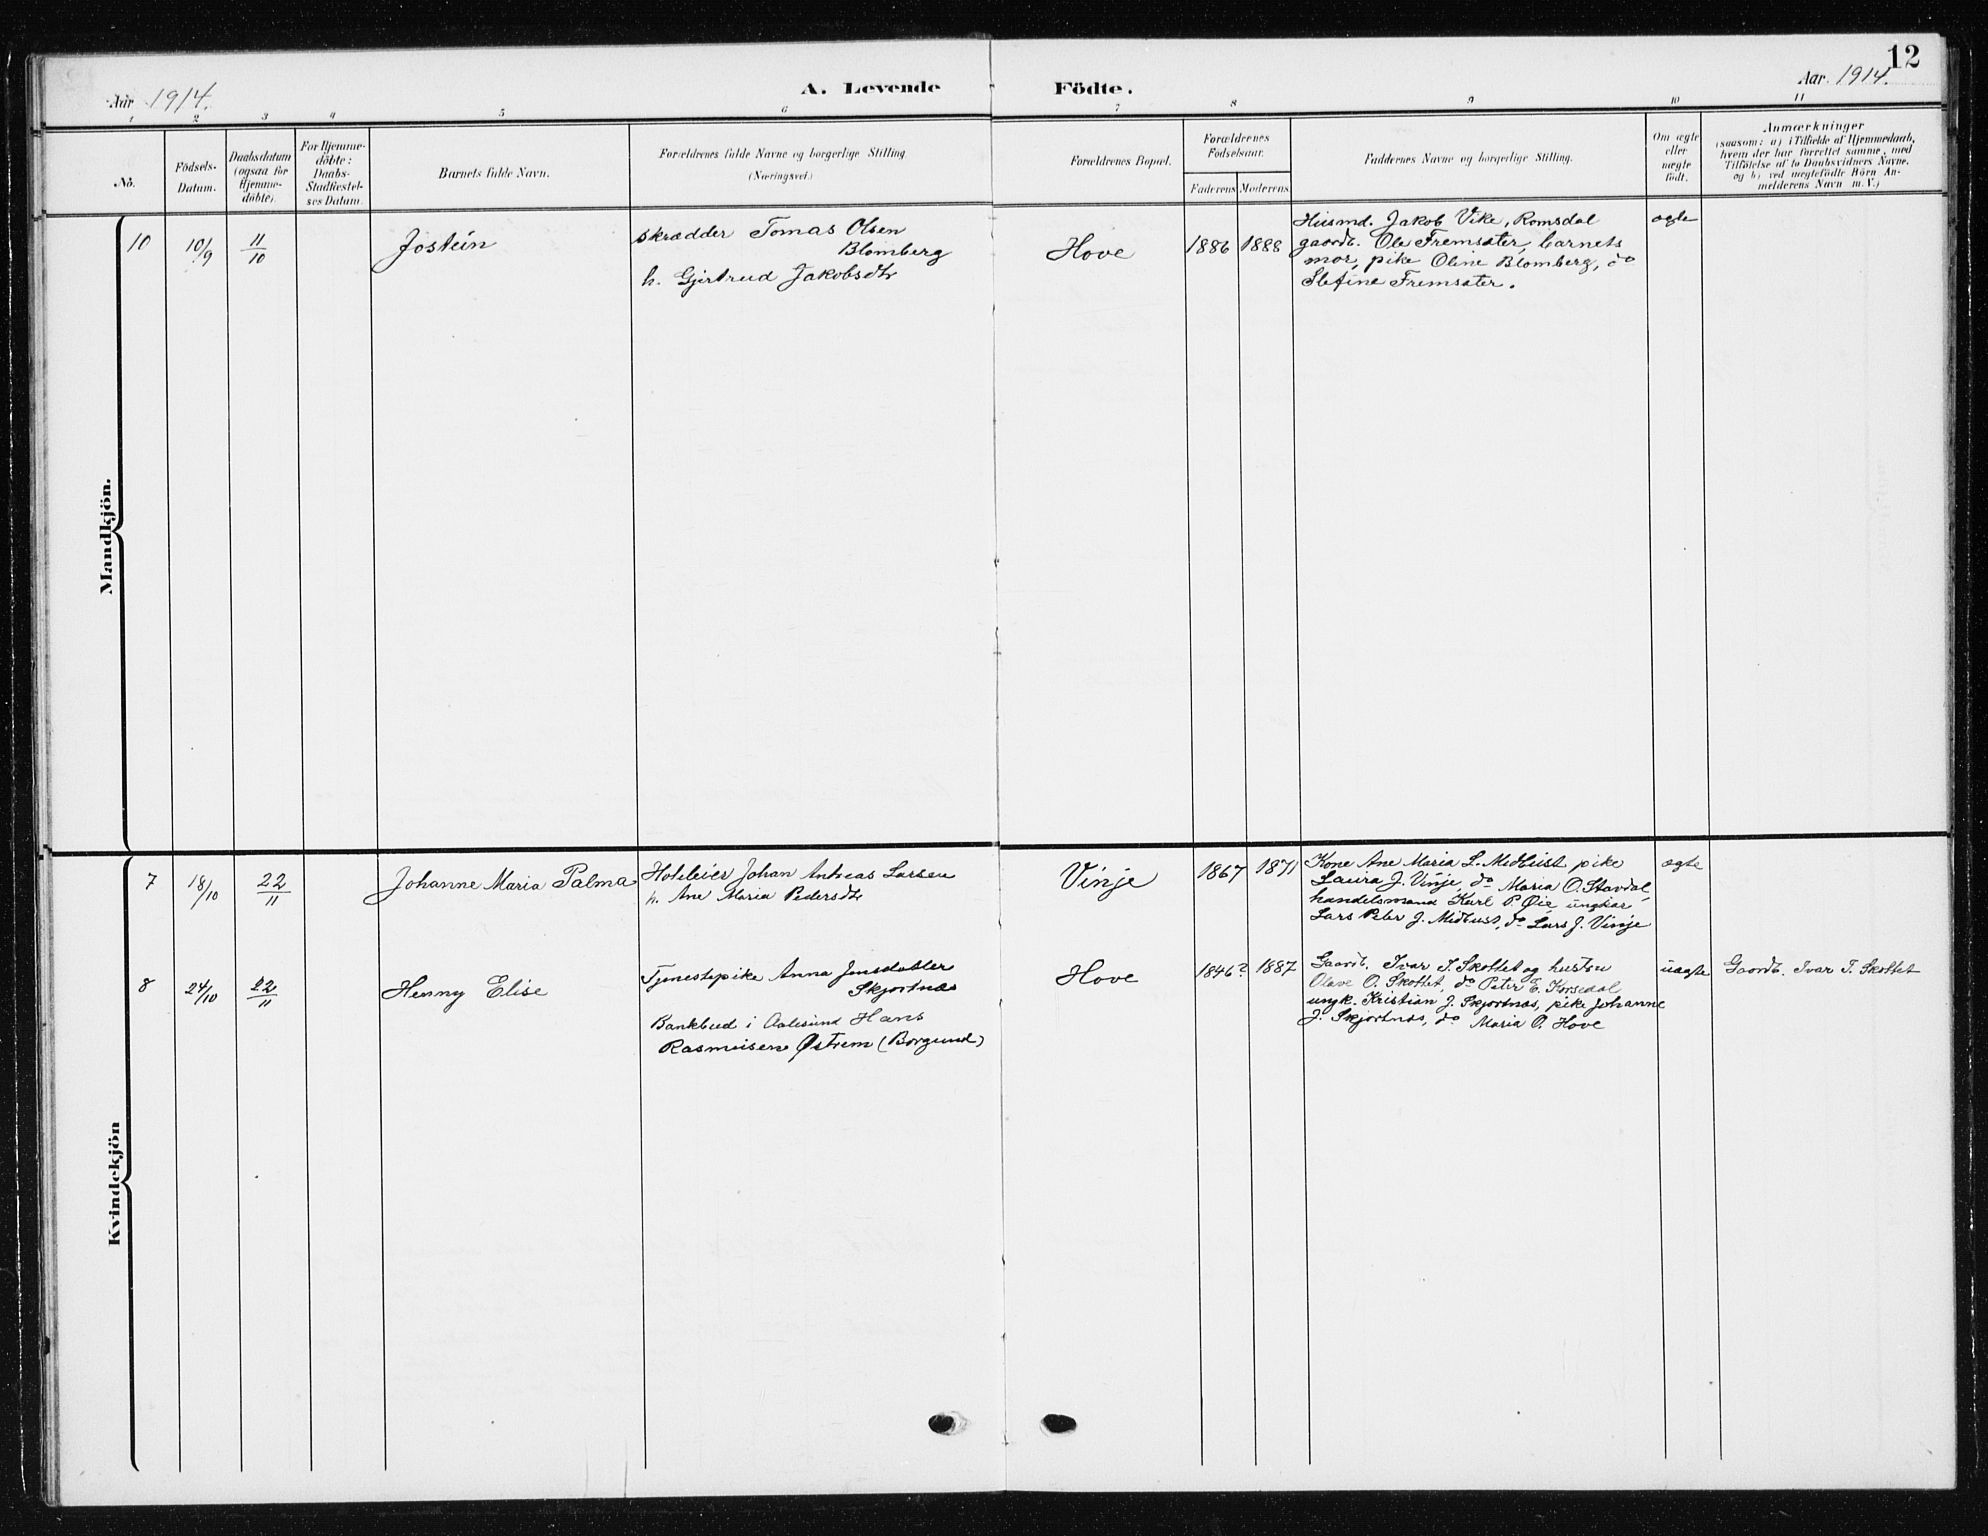 12
Aar 1914.
A. Levende
Födte.
Aar 1914.
1 2 3 4 5 6 7 8 9 10 11
No.
Födsels-
Datum.
Daabsdatum
(ogsaa for
Hjemme-
döbte).
For Hjemme-
döbte:
Daabs-
Stadfæstel-
ses Datum.
Barnets fulde Navn.
Forældrenes fulde Navne og borgerlige Stilling
(Næringsvei.)
Forældrenes Bopæl.
Forældrenes
Födselsaar.
Faderens
Moderens
Faddernes Navne og borgerlige Stilling.
Om ægte
eller
uægte
födt.
Anmærkninger
(saasom: a) i Tilfælde af Hjemmedaab,
hvem der har forrettet samme, med
Tilföielse af to Daabsvidners Navne.
og b) ved uægtefödte Börn An-
melderens Navn m. V.)
Mandkjön.
10
10/9
11/10
Jostein
Skrædder Tomas Olsen
Blomberg
h. Gjertrud Jakobsdtr
Hove
1886
1888
Husmd. Jakob Vike, Romsdal
gaardb. Ole Fremsæter, barnets
mor, pike Oline Blomberg, do
Stefine Fremsæter.
ægte
Kvindekjön
7
18/10
22/11
Johanne Maria Palma
Hoteleier Johan Antreas Larsen
h. Ane Maria Pedersdtr
Vinje
1867
1871
Kone Ane Maria L. Midtust pike
Laura J. Vinje, do Maria O. Stavdal,
handelsmand Karl P. Øie ungkar
Lars Peter J. Midtust, do Lars J. Vinje
ægte
8
24/10
22/11
Henny Elise
Tjenestepike Anna Jensdatter
Skjortnæs
Bankbud i Aalesund Hans
Rasmusen Østrem (Borgund)
Hove
1846?
1887
Gaardb. Ivar T. Skottet og hustru
Olave O. Skottet, do Peter E. Korsedal
ungk. Kristian J. Skjortnæs, pike Johanne
J. Skjortnæs, do Maria O. Hove
uægte
Gaardb. Ivar T. Skottet